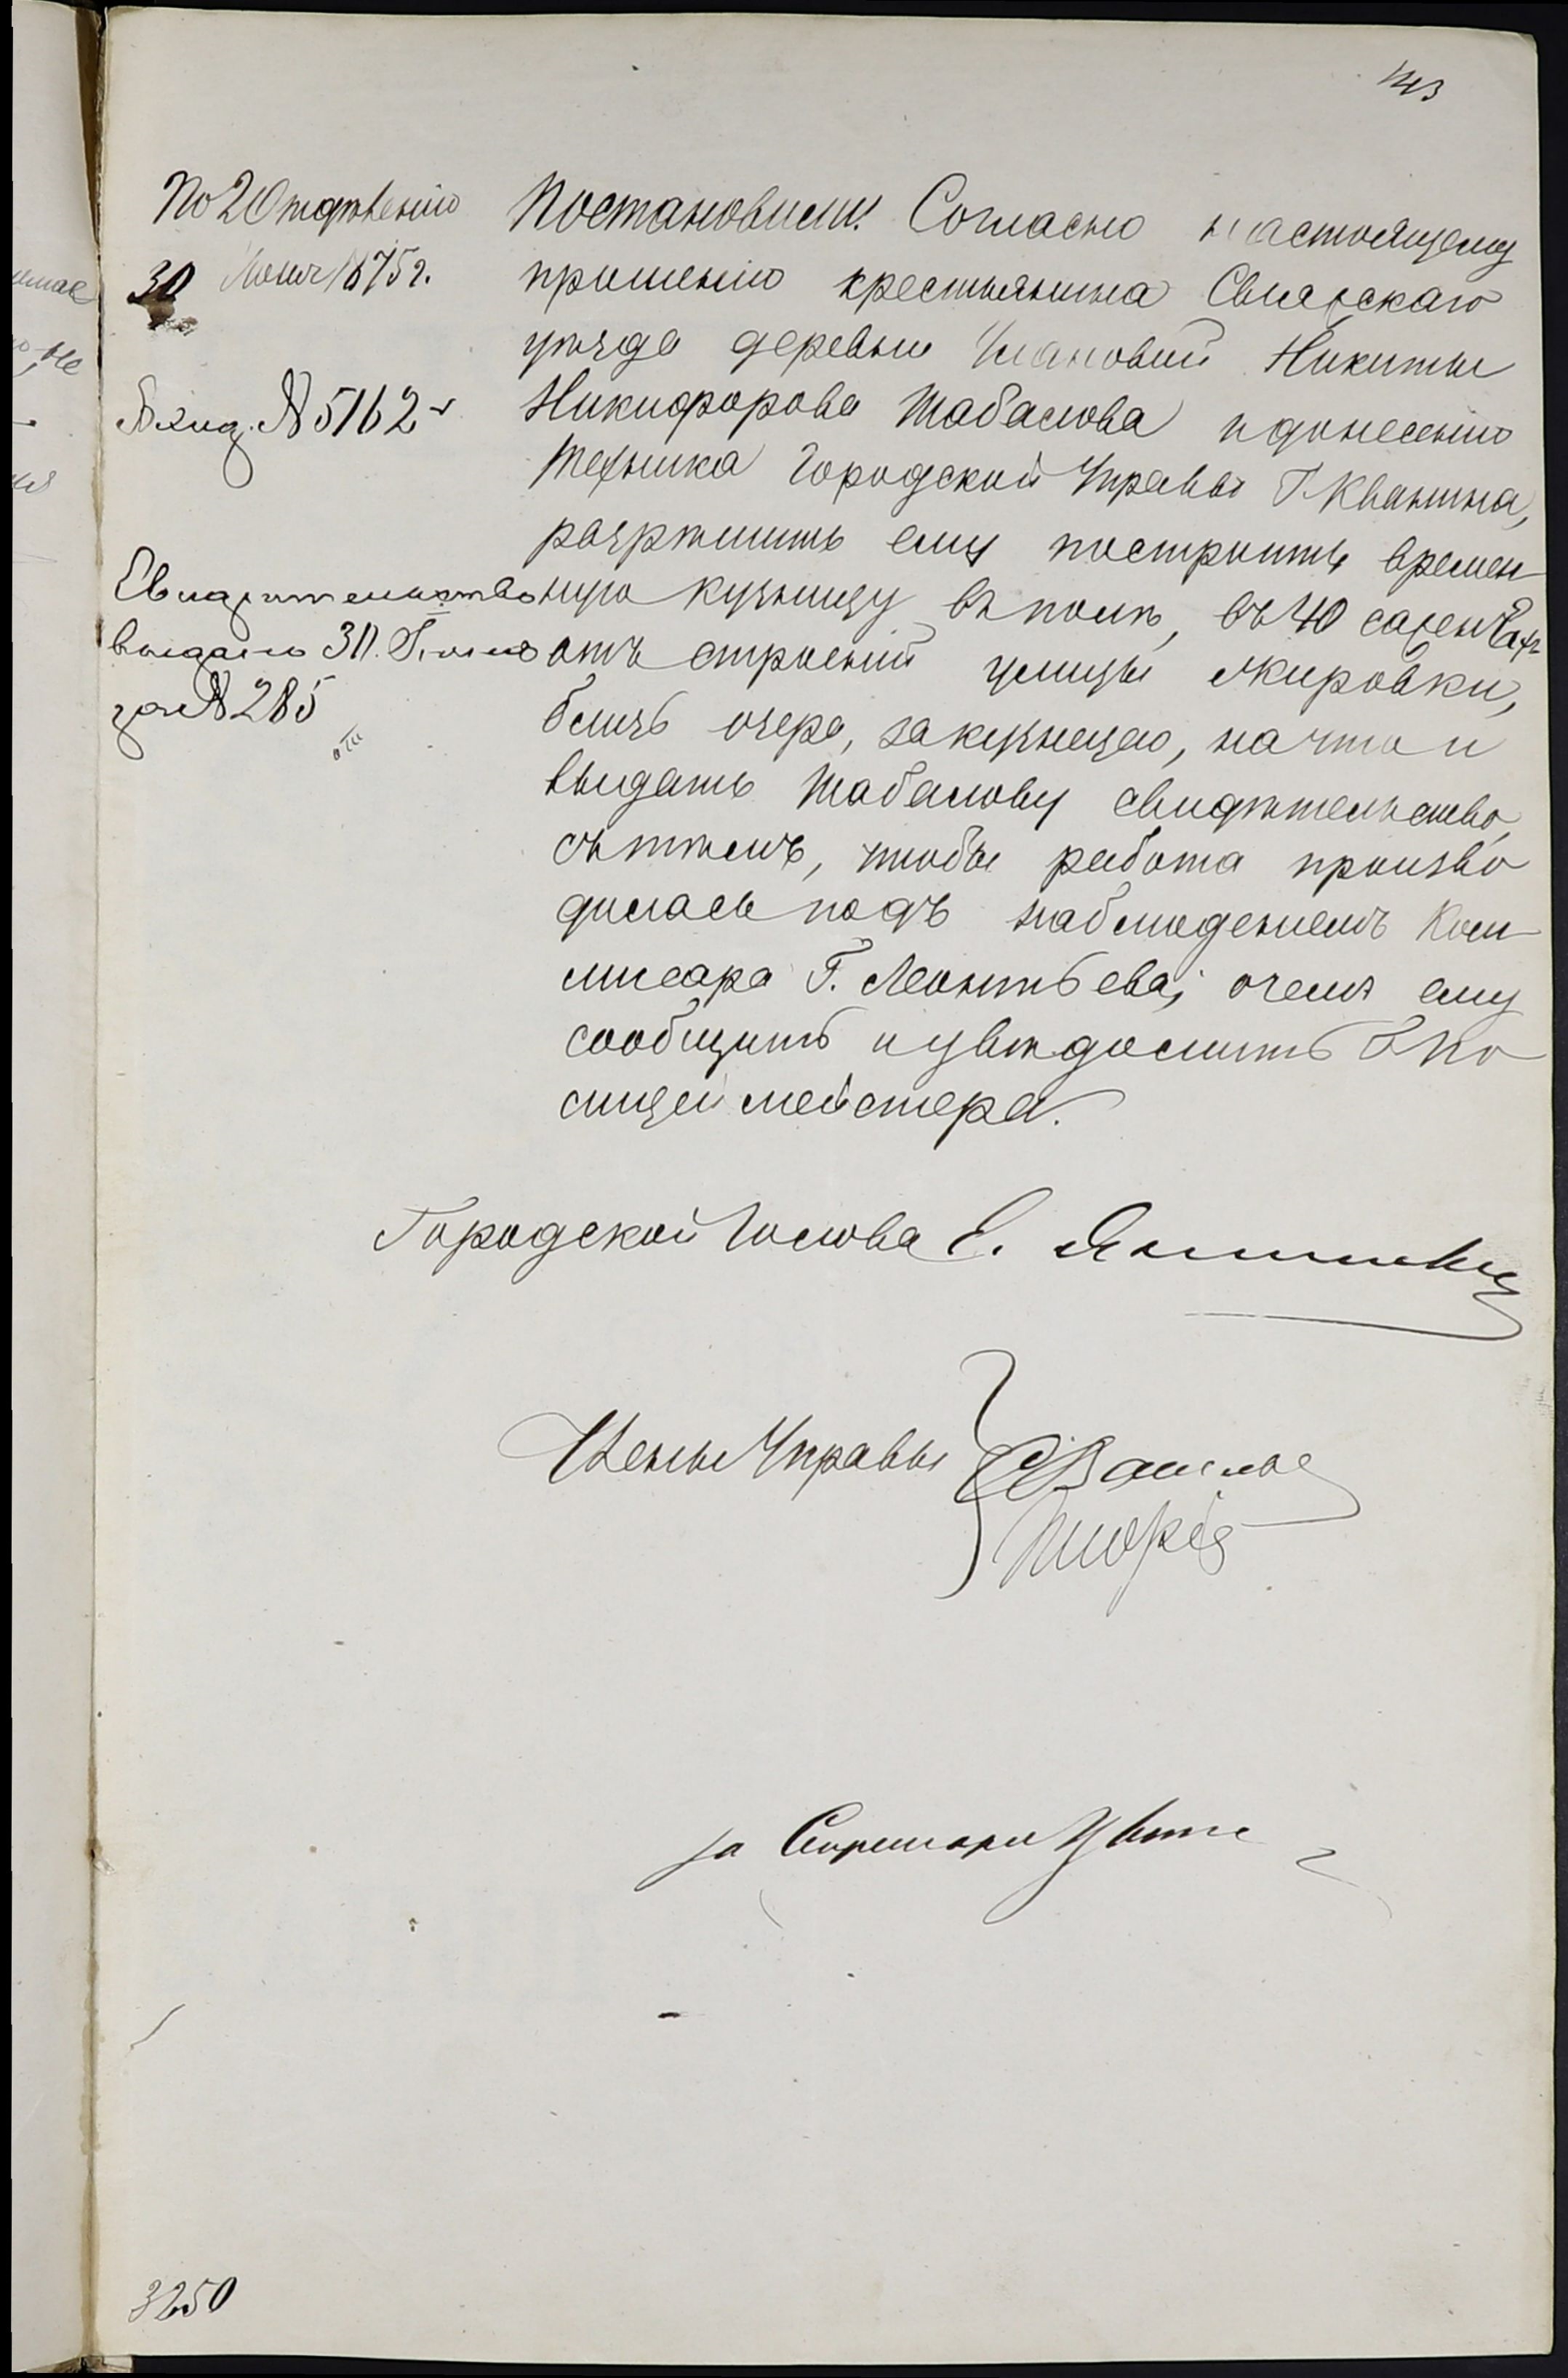 По 2 Отдѣленію
30 Іюня 1875 г.
Вход. № 5162
Свидѣтельство
выдано 30 Іюня
за № 285
Постановили: Согласно настоящему
прошенію крестьянина Свіяжскаго
уѣзда деревни Никиты
Никифорова Шабалова и донесенію
Техника Городской Управы Г. Кванина,
разрѣшить ему построить времен
ную кузницу въ полѣ, въ 40 саженяхъ
отъ строеній улицы Жировки,
близь озера, за кузницею, на что и
выдать Шабалову свидѣтельство,
съ тѣмъ, чтобы работа произво
дилась подъ наблюденіемъ Ком
мисара Г. Леонтьева; о чемъ ему
сообщить и увѣдомить Г. По
лицеймейстера.
Городской Голова Е.
Члены Управы
за Секретаря
3250